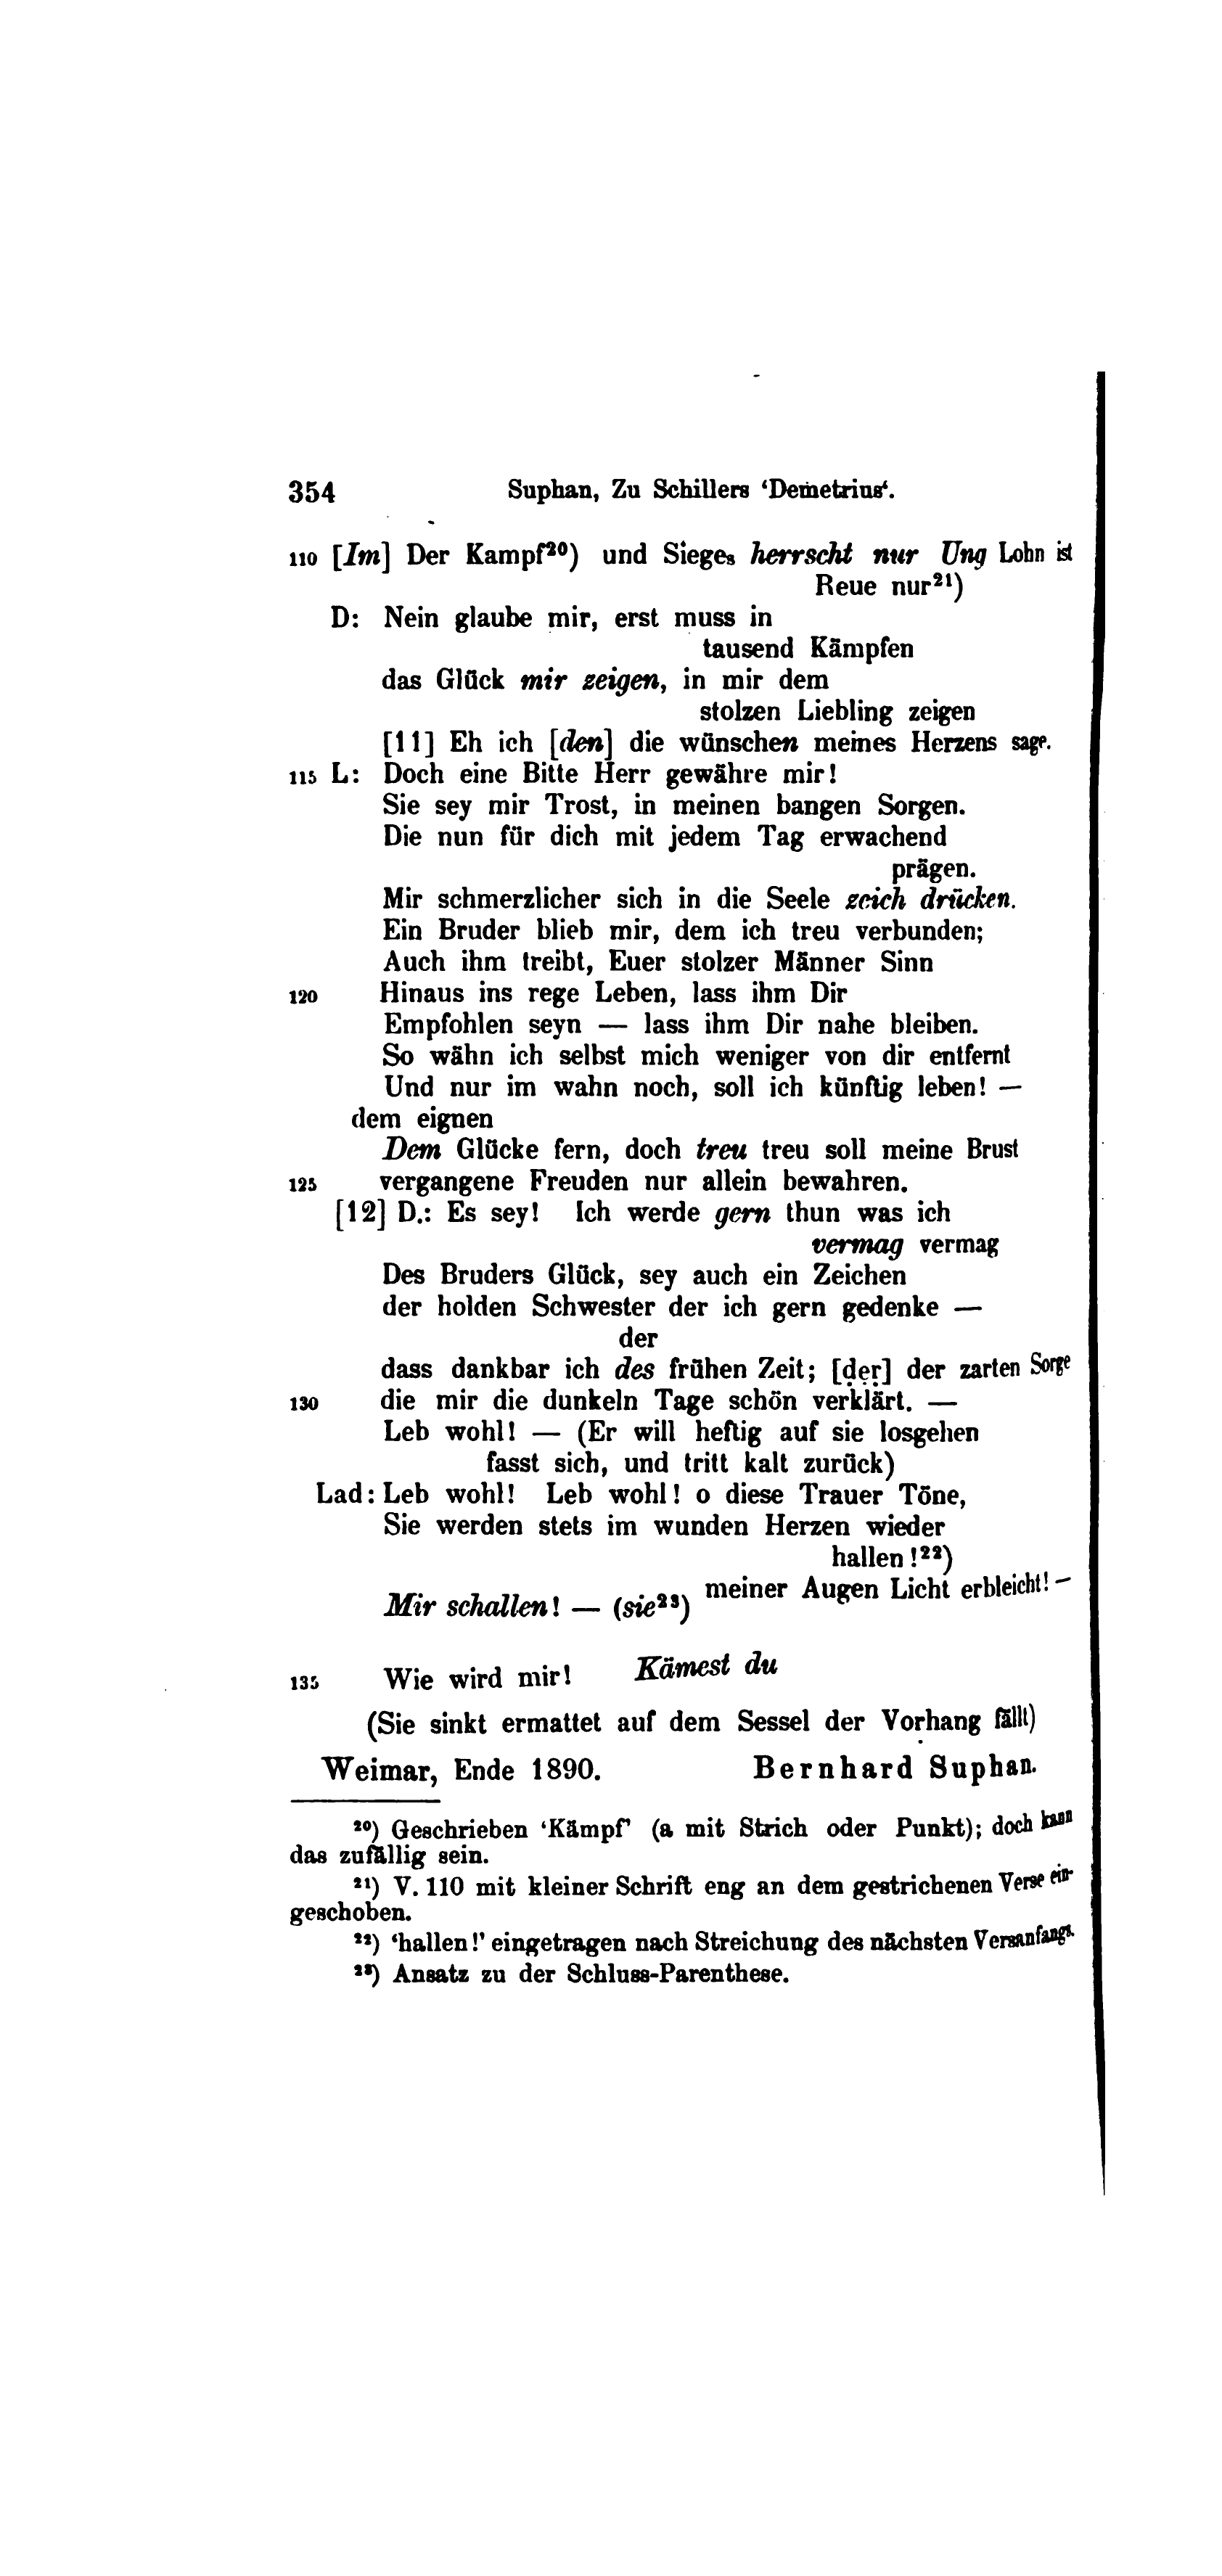 354 Suphan, Zu Schillers ‘Demetrius‘.
110 [Im] Der Kampf²⁰) und Sieges herrscht nur Ung Lohn ist
Reue nur²¹)
D: Nein glaube mir, erst muss in
tausend Kämpfen
das Glück mir zeigen, in mir dem
stolzen Liebling zeigen
[11] Eh ich [den] die wünschen meines Herzens sage.
115 L: Doch eine Bitte Herr gewähre mir!
Sie sey mir Trost, in meinen bangen Sorgen.
Die nun für dich mit jedem Tag erwachend
prägen.
Mir schmerzlicher sich in die Seele zeich drücken.
Ein Bruder blieb mir, dem ich treu verbunden;
Auch ihm treibt, Euer stolzer Männer Sinn
120 Hinaus ins rege Leben, lass ihm Dir
Empfohlen seyn — lass ihm Dir nahe bleiben.
So wähn ich selbst mich weniger von dir entfernt
Und nur im wahn noch, soll ich künftig leben! —
dem eignen
Dem Glücke fern, doch treu treu soll meine Brust
125 vergangene Freuden nur allein bewahren.
[12] D.: Es sey! Ich werde gern thun was ich
vermag vermag
Des Bruders Glück, sey auch ein Zeichen
der holden Schwester der ich gern gedenke —
der
dass dankbar ich des frühen Zeit; [der] der zarten Sorge
130 die mir die dunkeln Tage schön verklärt. —
Leb wohl! — (Er will heftig auf sie losgehen
fasst sich, und tritt kalt zurück)
Lad: Leb wohl! Leb wohl! o diese Trauer Töne,
Sie werden stets im wunden Herzen wieder
hallen!²²)
Mir schallen! — (sie²³) meiner Augen Licht erbleicht! —
135 Wie wird mir! Kämest du
(Sie sinkt ermattet auf dem Sessel der Vorhang fällt)
Weimar, Ende 1890. Bernhard Suphan.
²⁰) Geschrieben ‘Kämpf’ (a mit Strich oder Punkt); doch kann
das zufällig sein.
²¹) V. 110 mit kleiner Schrift eng an dem gestrichenen Verse ein-
geschoben.
²²) ‘hallen!’ eingetragen nach Streichung des nächsten Versanfangs.
²³) Ansatz zu der Schluss-Parenthese.